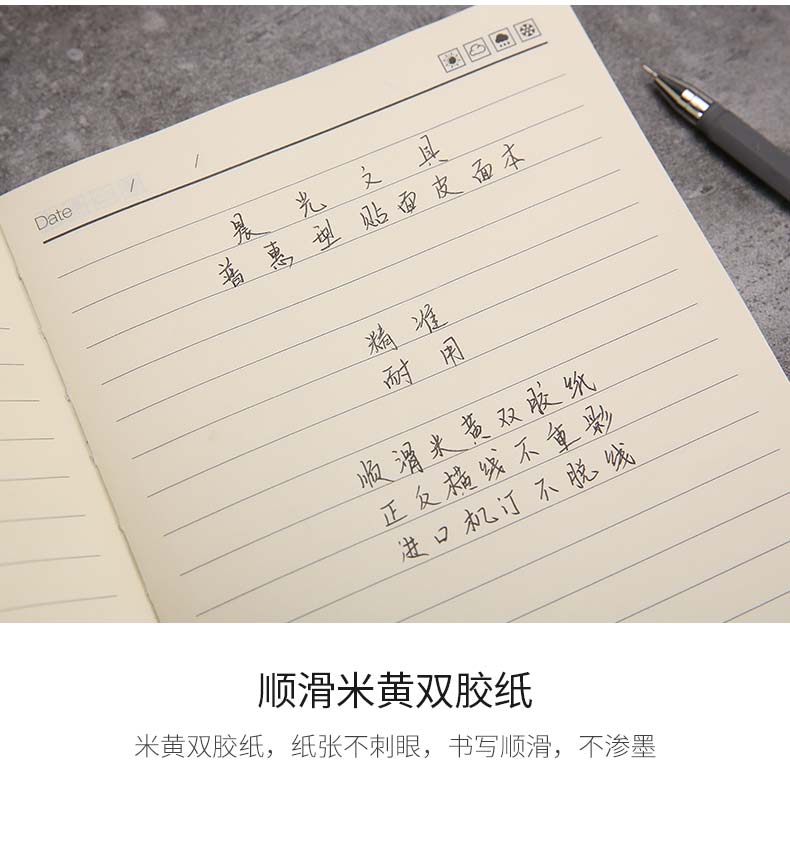 Date / /
晨光文具
普惠型贴面皮面本
精准
耐用
顺滑米黄双胶纸
正反横线不重影
进口机订不脱线
顺滑米黄双胶纸
米黄双胶纸，纸张不刺眼，书写顺滑，不渗墨